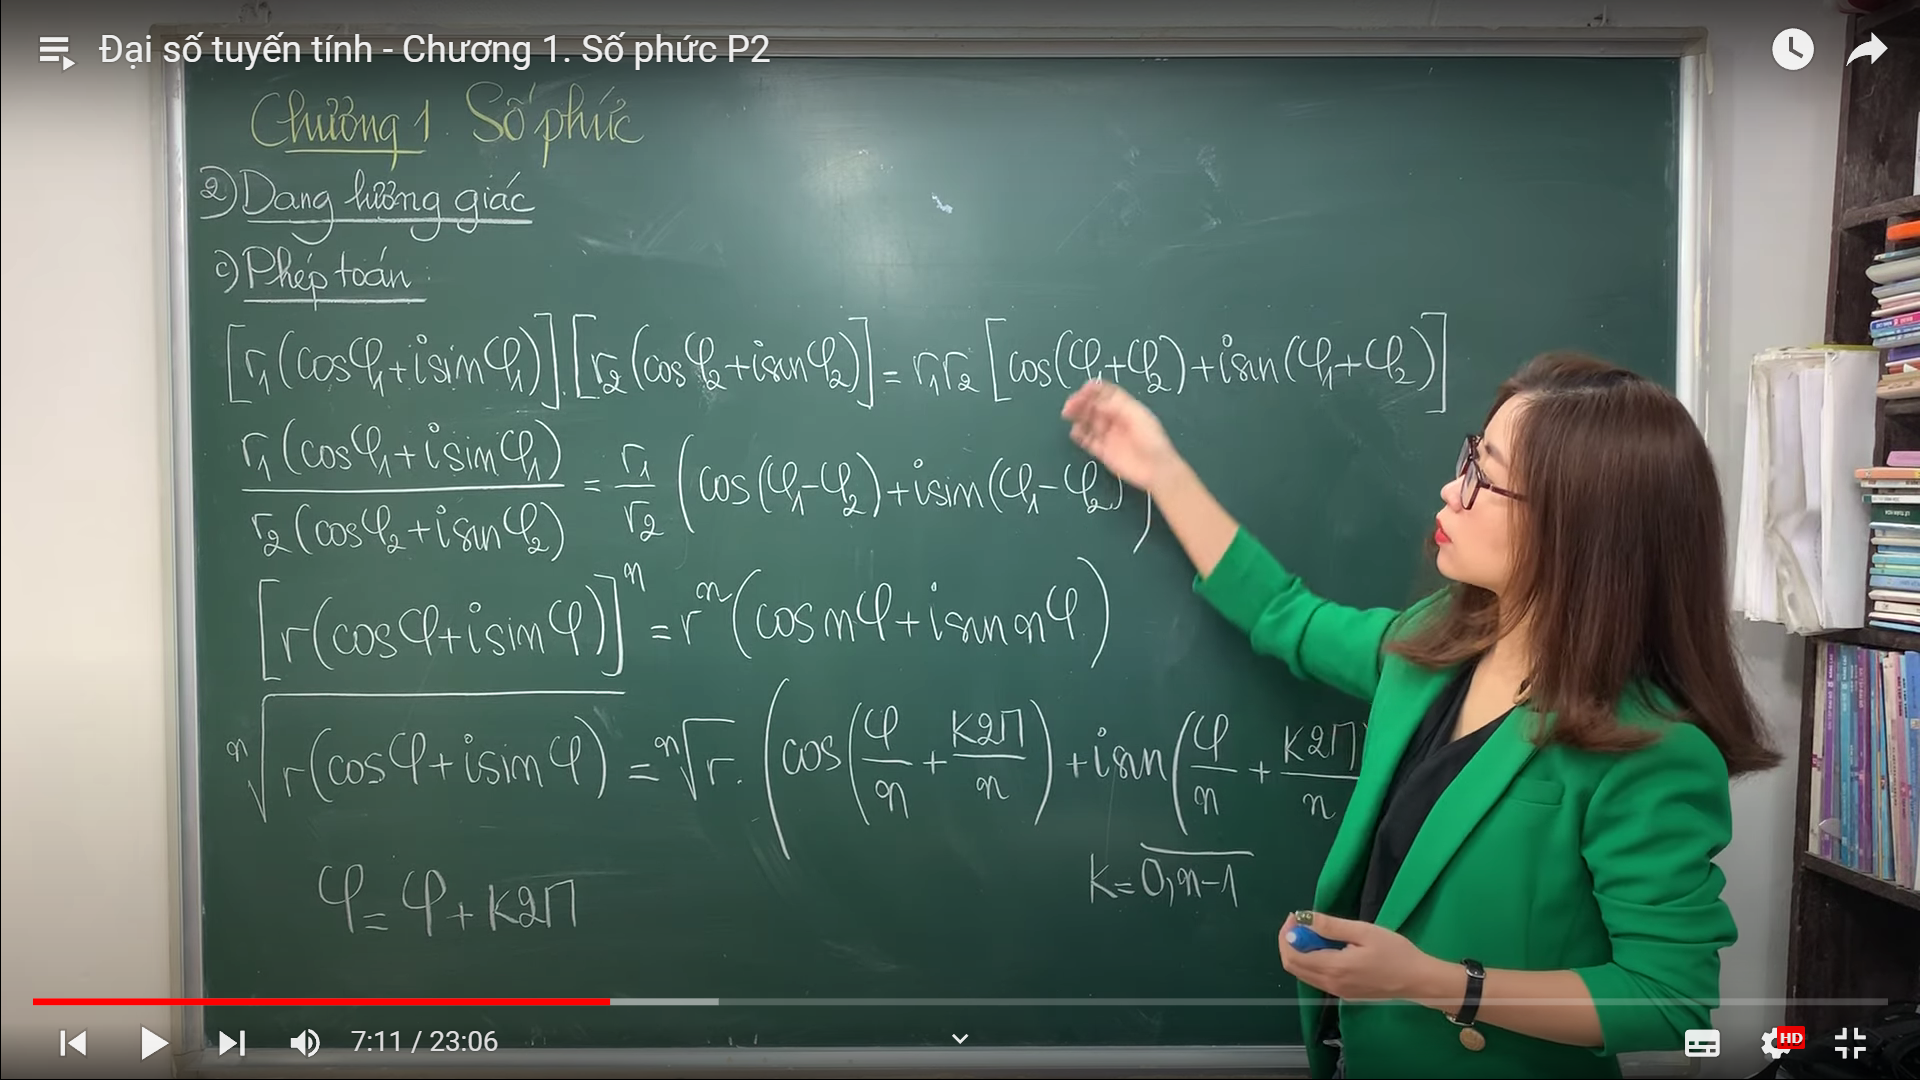 Đại số tuyến tính - Chương 1. Số phức P2
Chương 1. Số phức
2) Dạng lượng giác
c) Phép toán
[r₁(cosφ₁+isinφ₁)].[r₂(cosφ₂+isinφ₂)] = r₁r₂ [cos(φ₁+φ₂)+isin(φ₁+φ₂)]
r₁(cosφ₁+isinφ₁)/r₂(cosφ₂+isinφ₂) = r₁/r₂ (cos(φ₁-φ₂)+isin(φ₁-φ₂))
[r(cosφ+isinφ)]ⁿ = rⁿ(cosnφ+isinnφ)
ⁿ√r(cosφ+isinφ) = ⁿ√r. (cos(φ/n + k2π/n)+isin(φ/n + k2π/n
φ = φ + k2π
k = 0,n-1
7:11 / 23:06
HD